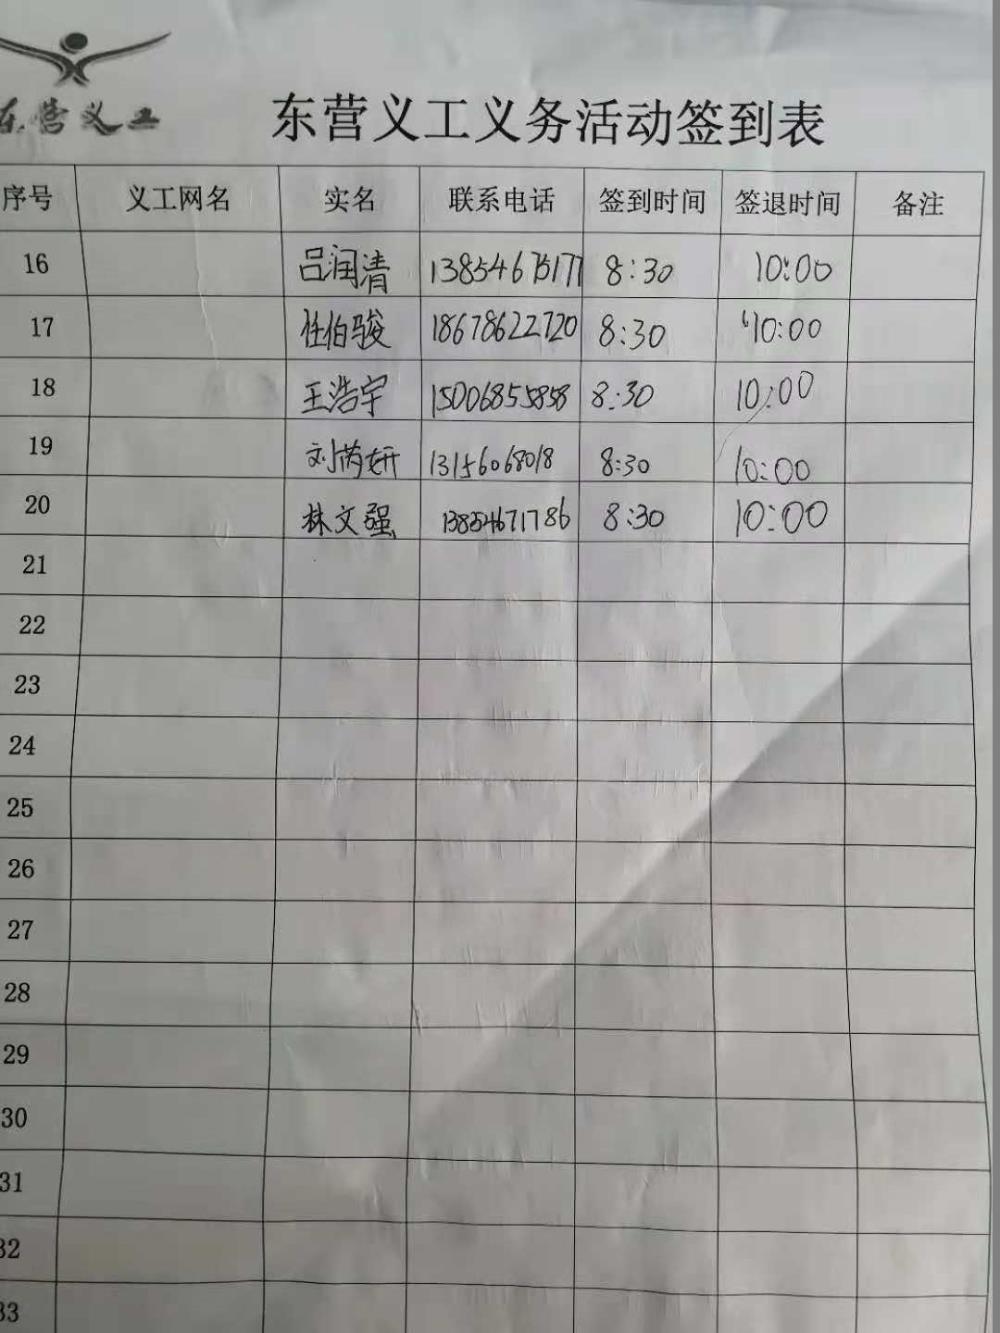 东营义工
东营义工义务活动签到表
序号 义工网名 实名 联系电话 签到时间 签退时间 备注
16 吕润清 13854675177 8:30 10:00
17 任伯骏 18678622720 8:30 10:00
18 王浩宇 15006855858 8:30 10:00
19 刘芮妍 13156068018 8:30 10:00
20 林文强 13854671786 8:30 10:00
21
22
23
24
25
26
27
28
29
30
31
32
33